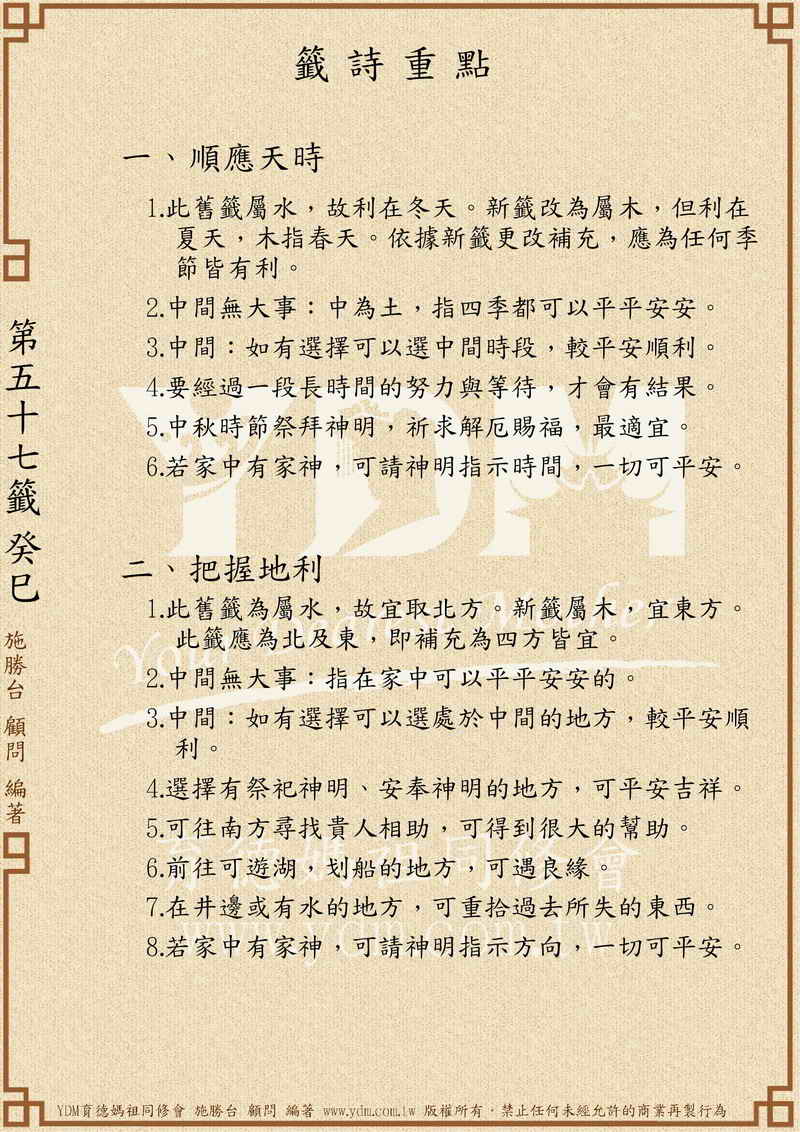 籤詩重點
一、順應天時
1.此舊籤屬水，故利在冬天。新籤改為屬木，但利在
夏天，木指春天。依據新籤更改補充，應為任何季
節皆有利。
2.中間無大事：中為土，指四季都可以平平安安。
3.中間：如有選擇可以選中間時段，較平安順利。
4.要經過一段長時間的努力與等待，才會有結果。
5.中秋時節祭拜神明，祈求解厄賜福，最適宜。
6.若家中有家神，可請神明指示時間，一切可平安。
二、把握地利
1.此舊籤為屬水，故宜取北方。新籤屬木，宜東方。
此籤應為北及東，即補充為四方皆宜。
2.中間無大事：指在家中可以平平安安的。
3.中間：如有選擇可以選處於中間的地方，較平安順
利。
4.選擇有祭祀神明、安奉神明的地方，可平安吉祥。
5.可往南方尋找貴人相助，可得到很大的幫助。
6.前往可遊湖，划船的地方，可遇良緣。
7.在井邊或有水的地方，可重拾過去所失的東西。
8.若家中有家神，可請神明指示方向，一切可平安。
第五十七籤 癸巳
施勝台 顧問 編著
YDM
育德媽祖同修會
www.ydm.com.tw
YDM育德媽祖同修會 施勝台 顧問 編著 www.ydm.com.tw 版權所有，禁止任何未經允許的商業再製行為